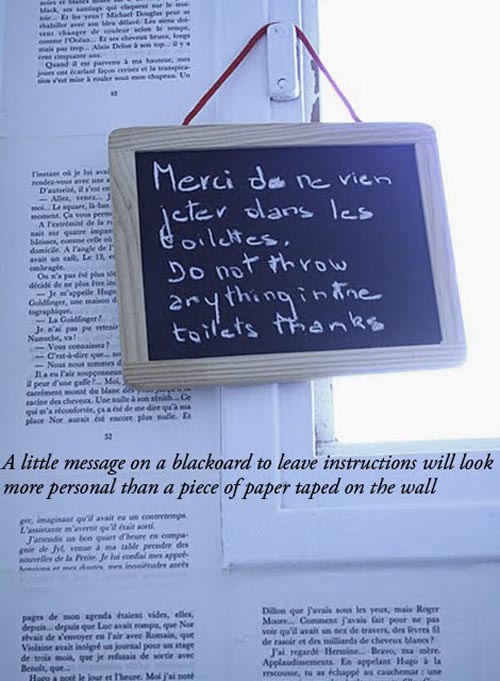 black, ses santiags qui claquent sur le trot-
toir... Et les yeux! Michael Douglas peut se
rhabiller avec son bleu délavé. Les siens doi-
vent changer de couleur selon le temps,
comme l'Océan... Et ses cheveux bruns, longs
mais pas trop... Alain Delon à son top... il y a
cent cinquante ans.
Quand il est parvenu à ma hauteur, mes
joues ont écarlaté façon cerises et la transpira-
tion s'est mise à rouler sous mon chapeau. Un
Merci de ne rien
jeter dans les
toilettes.
Do not throw
anything in the
toilets thanks
l'instant où je lui
rendez-vous avec une
D'autorité, il s'est
— Allez, venez...
moi... Le square, là-bas
moment. Ça vous
A l'extrémité de la
nait sur quatre
bâtisses, comme celle où
domicile. A l'angle de l'
avait un café, Le 13,
ombragée.
On n'a pas été plus
décidé de ne plus être
— Je m'appelle Hugo
Goldfinger, une maison
tographique.
— La Goldfinger?
Je n'ai pas pu retenir
Nunuche, va!
— Vous connaissez?
— C'est-à-dire que...
— Nous nous sommes
Il a eu l'air soupçonneux
il peur d'une gaffe?... Moi,
carrément monté du blanc des
racine des cheveux. Une nulle à son zénith... Ce
qui m'a réconfortée, ça a été de me dire qu'à ma
place Nor aurait été encore plus nulle. Et
52
A little message on a blackoard to leave instructions will look
more personal than a piece of paper taped on the wall
ger, imaginant qu'il avait eu un contretemps.
L'assistante m'avertit qu'il était sorti.
J'attendis un bon quart d'heure en compa-
gnie de Jyl, venue à ma table prendre des
nouvelles de la Petite. Je lui confiai mes appré-
hensions et mes doutes, mes inquiétudes après
pages de mon agenda étaient vides, elles,
depuis... depuis que Luc avait rompu, que Nor
rêvait de s'envoyer en l'air avec Romain, que
Violaine avait intégré un journal pour un stage
de trois mois, que je refusais de sortir avec
Benoît, que...
Hugo a noté le jour et l'heure. Moi j'ai noté
Dillon que j'avais sous les yeux, mais Roger
Moore... Comment j'avais fait pour ne pas
voir qu'il avait un nez de travers, des lèvres fil
de rasoir et des milliards de cheveux blancs?
J'ai regardé Hermine... Bravo, ma mère.
Applaudissements. En appelant Hugo à la
rescousse, tu as échappé au cauchemar : une